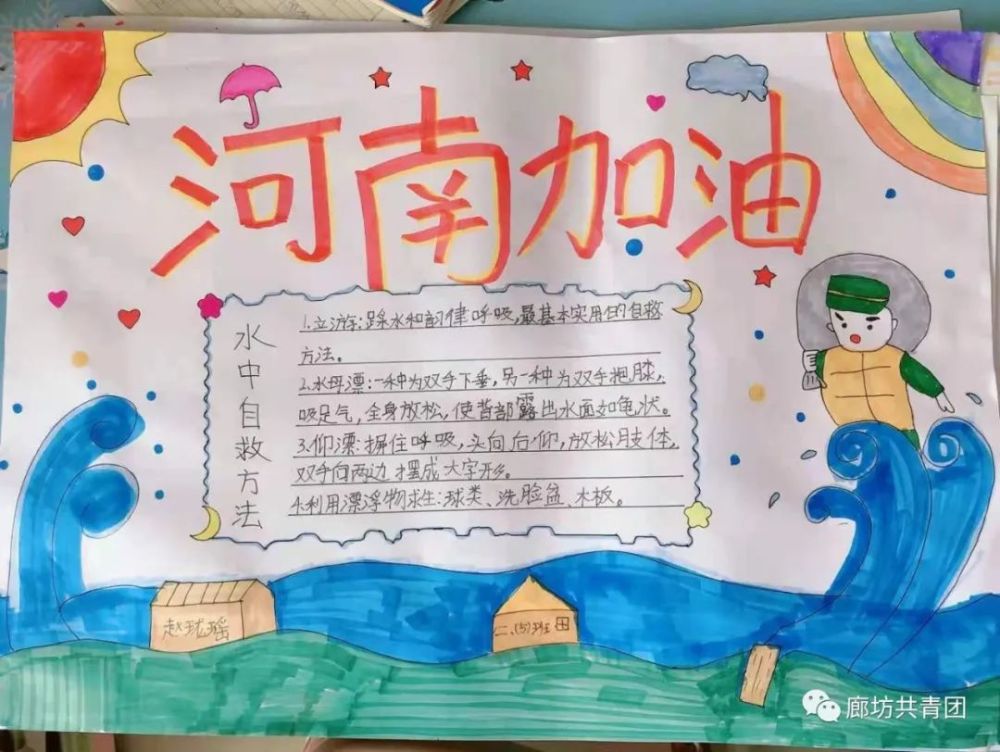 河南加油
水中自救方法
1.立游:踩水和韵律呼吸,最基本实用的自救
方法。
2.水母漂:一种为双手下垂,另一种为双手抱膝,
吸足气,全身放松,使背部露出水面如龟状。
3.仰漂:摒住呼吸,头向后仰,放松肢体,
双手向两边摆成大字形。
4.利用漂浮物求生:球类、洗脸盆、木板。
二、(5)班
廊坊共青团